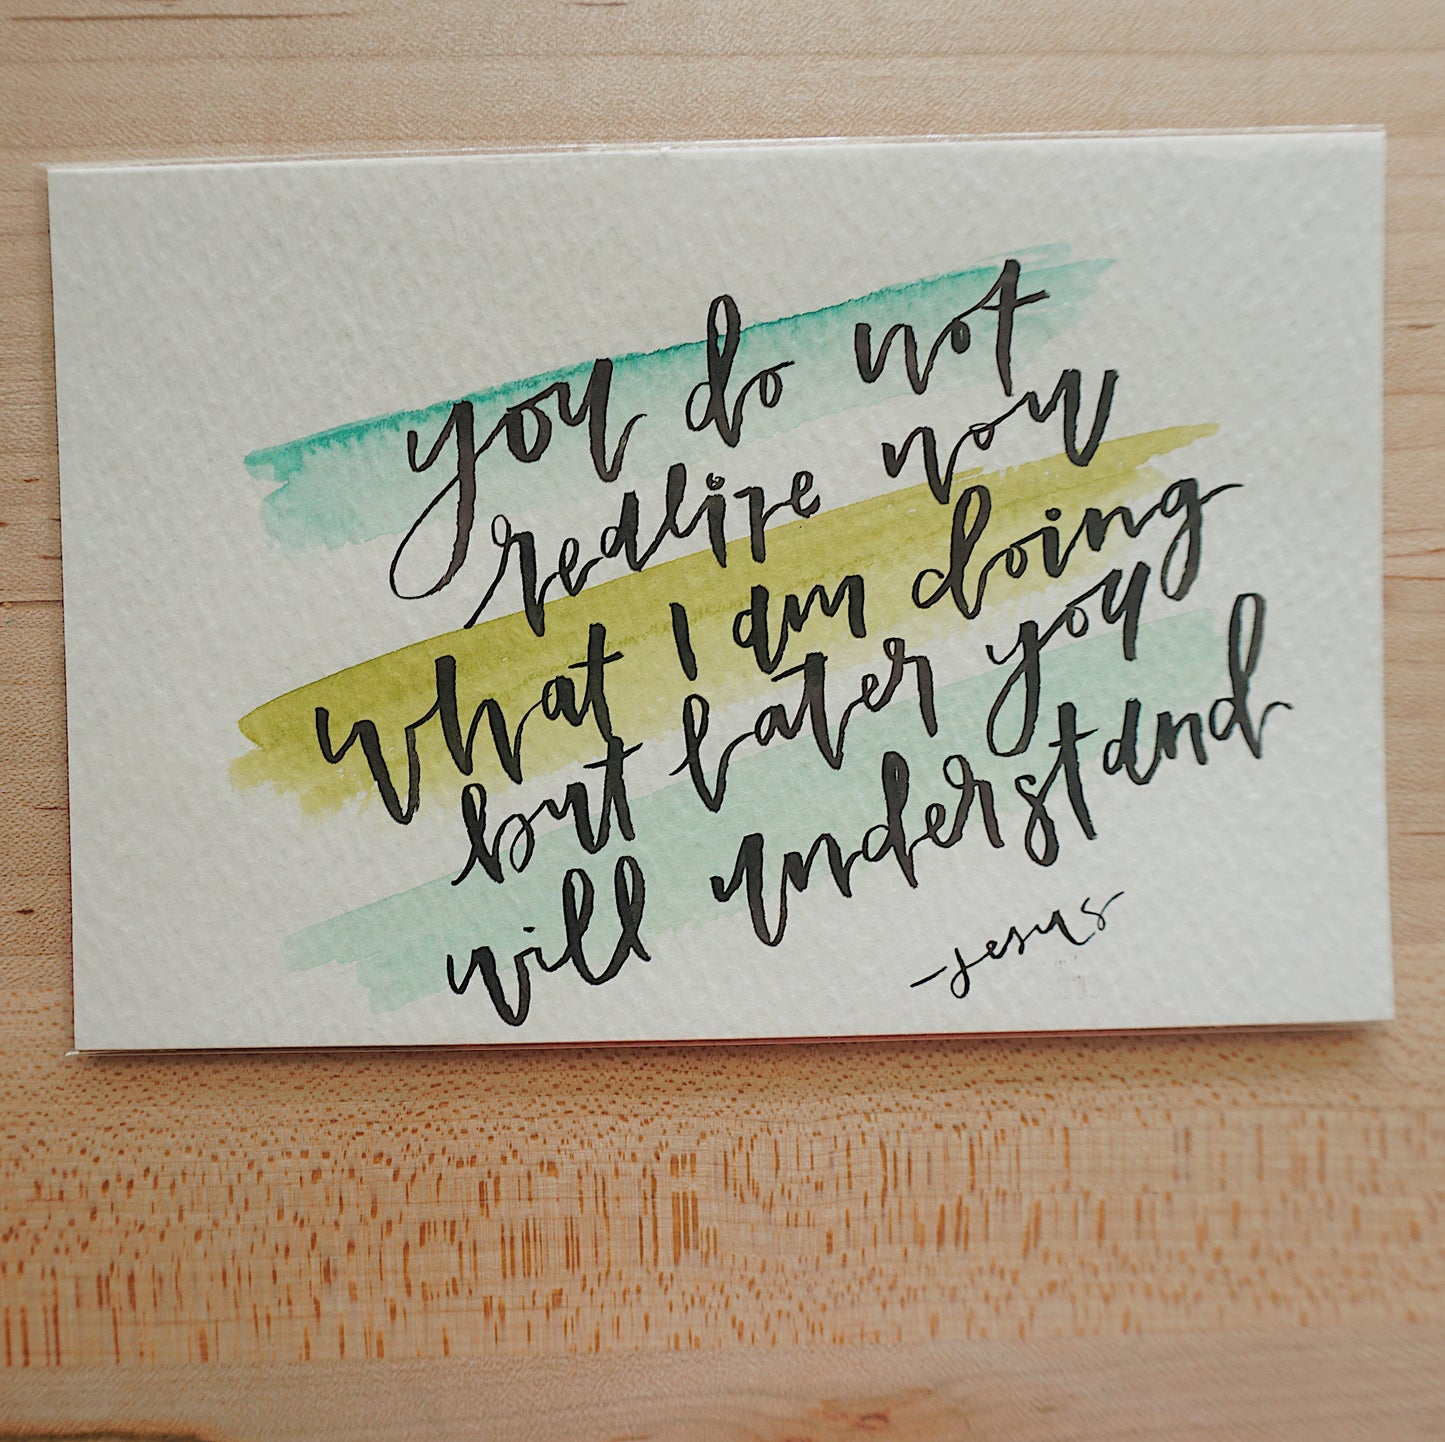 you do not
realize now
what I am doing
but later you
will understand
-Jesus